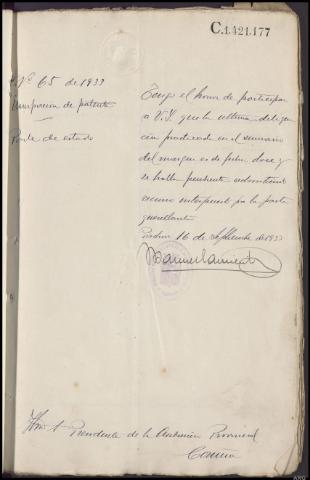 C.1.421.177
Nº 65 de 1933
Usurpacion de patente
Parte de estado
Tengo el honor de participar
a V.S. que la ultima diligen
cia practicada en el sumario
del margen es de fecha doce y
se halla pendiente
recurso interpuesto por la parte
querellante
16 de Septiembre de 1933
Ilmo Sr Presidente de la Audiencia Provincial
Coruña
ARG